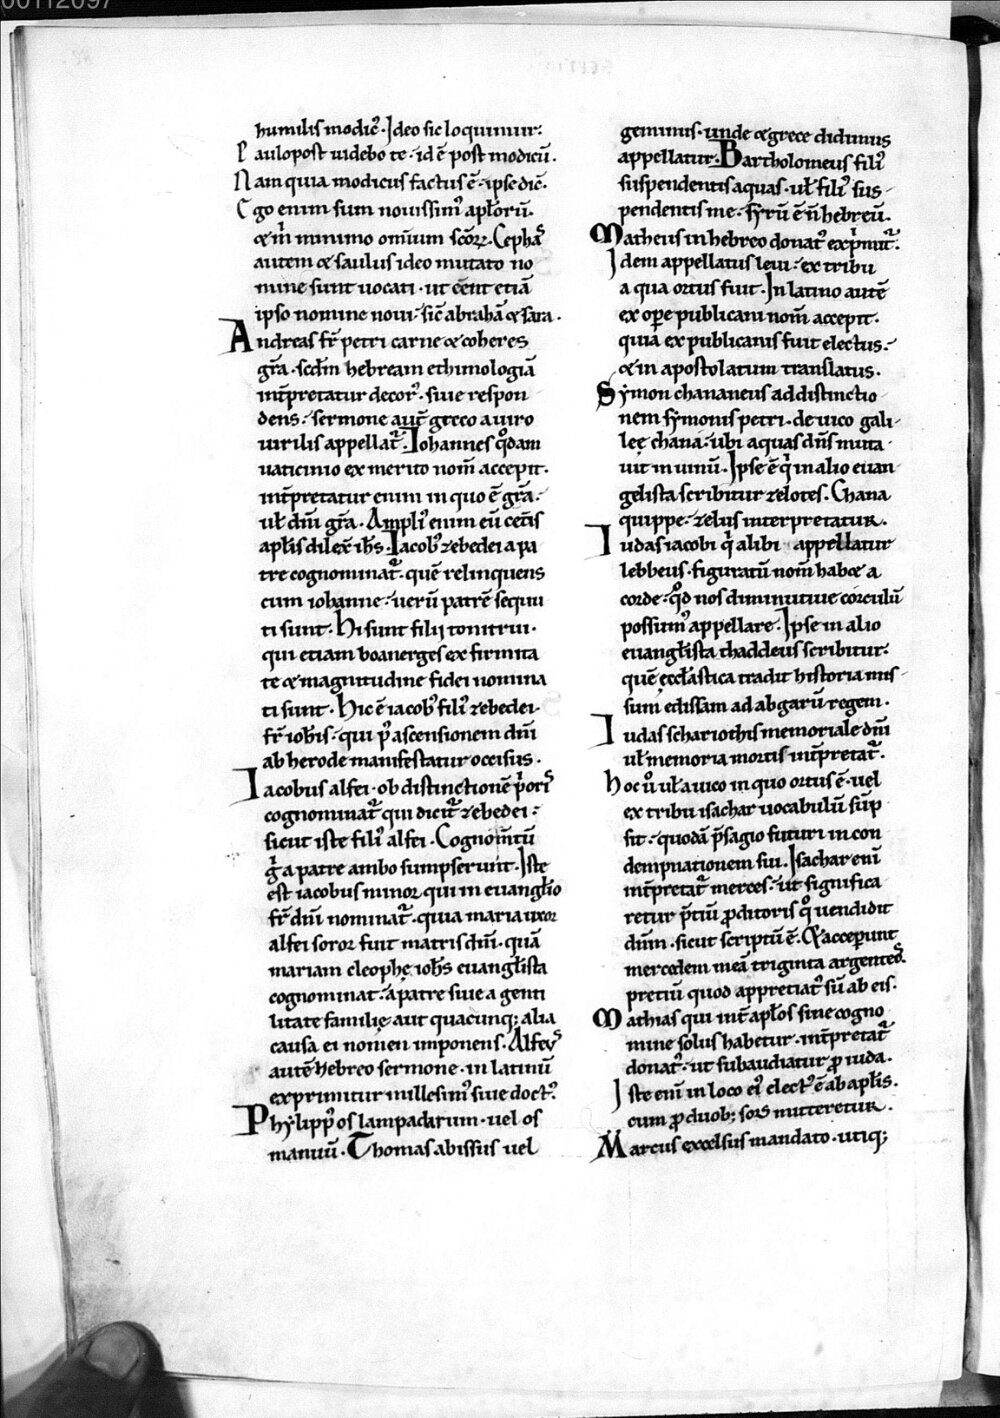 00112097
humilis modic᷒· Ideo sic loquimur:
Paulopost uidebo te· id ē post modicū.
Nam quia modicus factus ē· ipse dic̄.
Ego enim sum nouissim᷒ apl̄orū.
& m̄ minimo omnium sc̄orꝝ. Cephas
autem & saulus ideo mutato no
mine sunt uocati· ut eēnt etiā
ipso nomine noui· sic̄ abrahā & sara.
Andreas fr̄ petri carne & coheres
gr̄a· scd̄m hebream ethimologiā
int̄pretatur decor᷒· siue respon
dens· sermone aut̄ greco a uiro
uirilis appellat᷑. Iohannes qͦdam
uaticinio ex merito nom̄ accepit.
int̄pretatur enim in quo ē gr̄a·
ul̄ dn̄i gr̄a. Ampli᷒ enim eū cet̄is
apl̄is dilex̄ ih̄s. Iacob᷒ zebedei a pa
tre cognominat᷑· quē relinquens
cum iohanne· uerū patrē secuti
ti sunt. Hi sunt filij tonitrui·
qui etiam boanerges ex firmita
te & magnitudine fidei nomina
ti sunt. Hic ē iacob᷒ fili᷒ zebedei·
fr̄ ioh̄is· qui p᷒ ascensionem dn̄i
ab herode manifestatur occisus.
Iacobus alfei· ob distinctionē p̄oris
cognominat᷑ qui dicit᷑ zebedei:
sicut iste fili᷒ alfei. Cognom̄tū
g̊ a patre ambo sumpserunt. Iste
est iacobus minor qui in euangl̄io
fr̄ dn̄i nominat᷑· quia maria uxor
alfei soror fuit matris dn̄i· quā
mariam cleophę ioh̄s euangl̄ista
cognominat· a patre siue a genti
litate familię aut quacunq; alia
causa ei nomen imponens. Alfeus
autē hebreo sermone· in latinū
exprimitur millesim᷒ siue doct᷒.
Phylipp᷒ os lampadarum· uel os
manuū. Thomas abissus uel
geminus· unde & grece didimus
appellatur. Bartholomeus fili᷒
suspendentis aquas· ul̄ fili᷒ sus-
pendentis me· syrū ē n̄ hebreū.
Matheus in hebreo donat᷒ exp̄mit᷑.
Idem appellatus leui· ex tribu
a qua ortus fuit. In latino autē
ex oꝑe publicani nom̄ accepit·
quia ex publicanis fuit electus·
& in apostolatum translatus.
Symon chananeus ad distinctio
nem symonis petri· de uico gali-
leę chana· ubi aquas dn̄s muta-
uit in uinū. Ipse ē qͥ in alio euan-
gelista scribitur zelotes. Chana
quippe· zelus interpretatur.
Iudas iacobi qͥ alibi appellatur
lebbeus· figuratū nom̄ habet a
corde· qͦd nos diminutiue corculū
possum᷒ appellare. Ipse in alio
euangl̄ista thaddeus scribitur·
quē eccl̄astica tradit historia mis-
sum edissam ad abgarū regem.
Iudas schariothis memoriale dn̄i
ul̄ memoria mortis int̄pretat᷑.
Hoc ů ul̄ a uico in quo ortus ē· uel
ex tribu isachar uocabulū sūp
sit· quodā p̄sagio futuri in con
dempnationem sui. Isachar eni̅
int̄pretat᷑ merces· ut significa
retur p̄tiū ꝓditoris qͦ uendidit
dn̄m· sicut scriptū ē. Et acceperunt
mercedem meā triginta argenteos·
pretiū quod appretiat᷒ sū ab eis.
Mathias qui int̄ apl̄os sine cogno
mine solus habetur· int̄pretat᷑
donat᷒· ut subaudiatur ꝓ iuda.
Iste eni̅ in loco ei᷒ elect᷒ ē ab apl̄is·
cum ꝓ duob; sors mitteretur.
Marcus excelsus mandato· utiq;